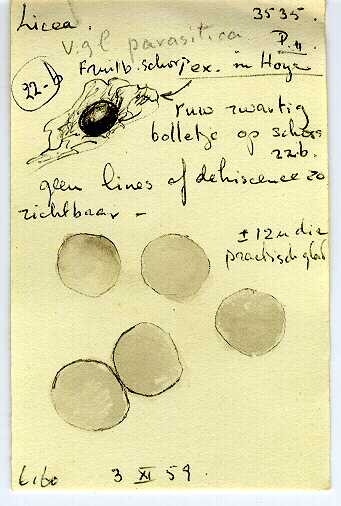 Licea. 3535.
v.gl parasitica P.11
Fruitb. schorp ex. in Hoya
22-b
ruw zwartig
bolletje op schors
zzb.
geen lines of dehiscence zo
zichtbaar -
± 12 u dia
practisch glad
3 XI 59.